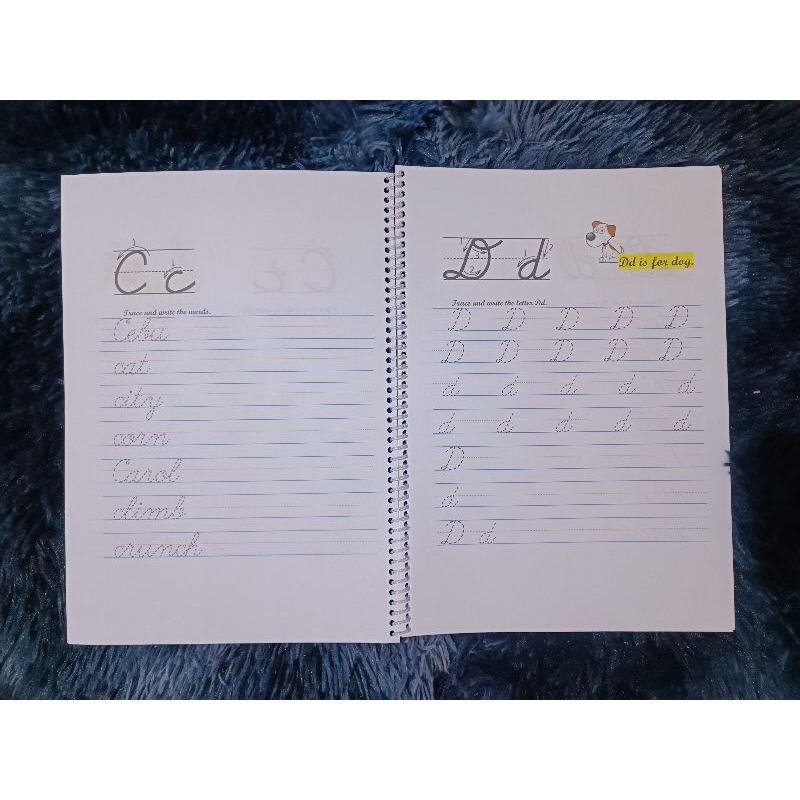 C c
Trace and write the words.
Cebu
cat
city
corn
Carol
climb
crunch
D d
Dd is for dog.
Trace and write the letter Dd.
D D D D D
D D D D D
d d d d d
d d d d d
D
d
D d